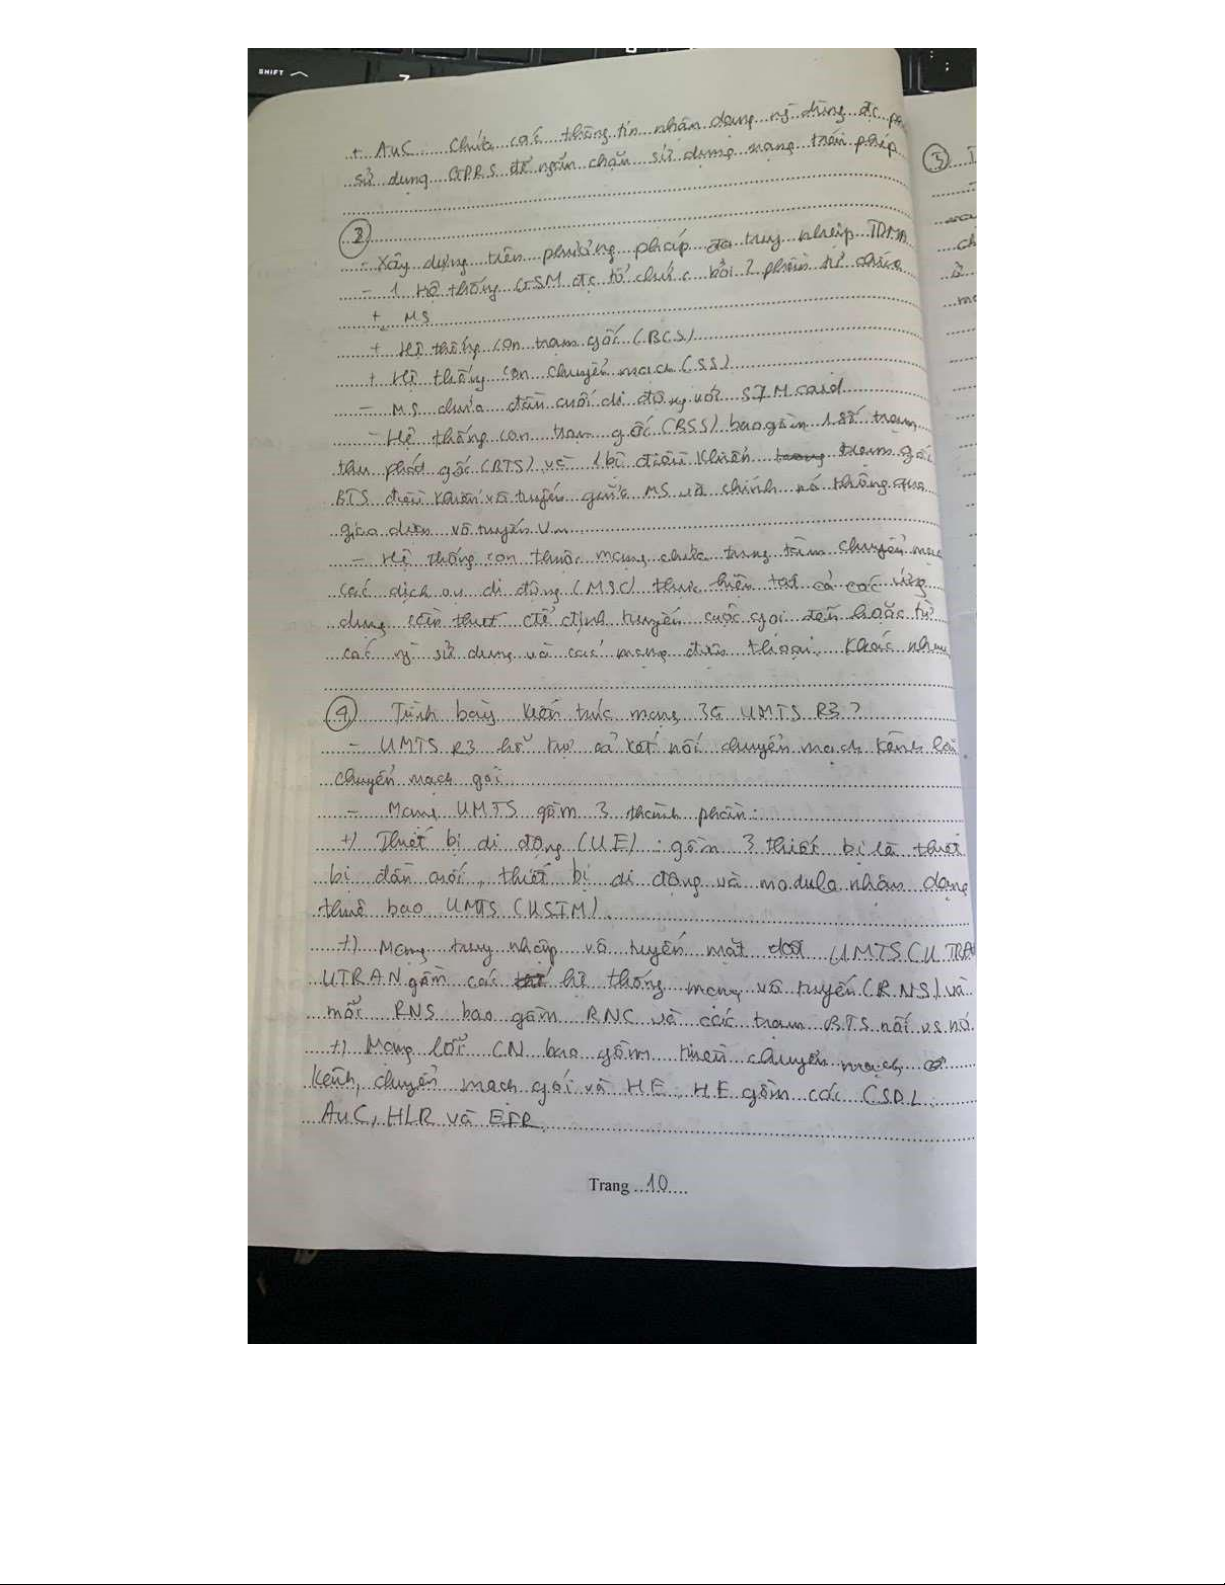 SHIFT
7
+ AuC Chứa các thông tin nhận dạng ng dùng đc
sử dụng GPRS để ngăn chặn sử dụng mạng trái phép
2
- Xây dựng trên phương pháp đa truy nhập TDMA
- 1 Hệ thống GSM đc tổ chức bởi 3 phần tử chính
+ MS
+ Hệ thống con trạm gốc (BCS)
+ Hệ thống con chuyển mạch (SS)
- MS chứa đầu cuối di động với SIM card
- Hệ thống con trạm gốc (BSS) bao gồm 1 số trạm
thu phát gốc (BTS) và 1 bộ điều khiển trạm gốc
BTS điều khiển vô tuyến giữa MS và chính nó thông qua
giao diện vô tuyến Um
- Hệ thống con thuộc mạng chứa trung tâm chuyển mạch
các dịch vụ di động (MSC) thực hiện tất cả các ứng
dụng cần thiết để định tuyến cuộc gọi đến hoặc từ
các ng sử dụng và các mạng điện thoại khác nhau
4 Trình bày kiến trúc mạng 3G UMTS R3?
- UMTS R3 hỗ trợ cả kết nối chuyển mạch kênh lẫn
chuyển mạch gói
- Mạng UMTS gồm 3 thành phần:
+) Thiết bị di động (UE): gồm 3 thiết bị là thiết
bị đầu cuối, thiết bị di động và modula nhận dạng
thuê bao UMTS (USIM).
+) Mạng truy nhập vô tuyến mặt đất UMTS (UTRA
UTRAN gồm các hệ thống mạng vô tuyến (RNS) và
mỗi RNS bao gồm RNC và các trạm BTS nối vs nó
+) Mạng lõi CN bao gồm miền chuyển mạch
kênh, chuyển mạch gói và HE. HE gồm các CSDL:
AuC, HLR và EIR.
Trang 10
3